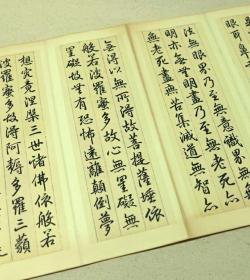 眼耳鼻
法無眼界乃至無意識界無
明亦無無明盡乃至無老死亦
無老死盡無苦集滅道無智亦
無得以無所得故菩提薩埵依
般若波羅蜜多故心無罣礙無
罣礙故無有恐怖遠離顛倒夢
想究竟涅槃三世諸佛依般若
波羅蜜多故得阿耨多羅三藐